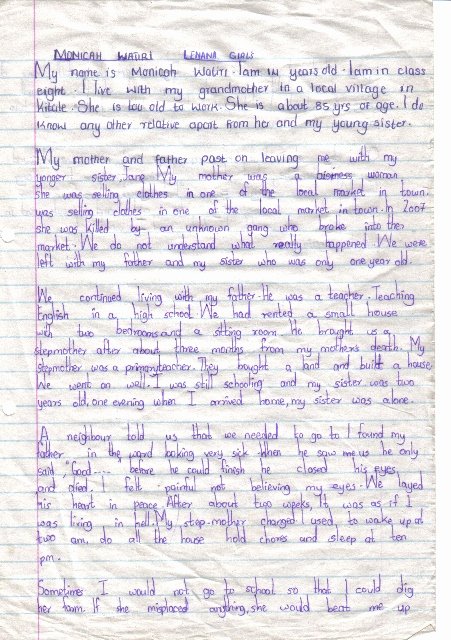 MONICAH WATIRI LENANA GIRLS
My name is Monicah Watiri. I am 14 years old. I am in class
eight. I live with my grandmother in a local village in
Kitale. She is too old to work. She is about 85 yrs of age. I do
know any other relative apart from her and my young sister.
My mother and father past on leaving me with my
yonger sister, Jane. My mother was a bisness woman
she was selling clothes in one of the local market in town.
was selling clothes in one of the local market in town. In 2007
she was killed by an unknown gang who broke into the
market. We do not understand what really happened. We were
left with my father and my sister who was only one year old.
We continued living with my father. He was a teacher. Teaching
English in a high school. We had rented a small house
with two bedrooms and a sitting room. He brought us a
stepmother after about three months from my mother's death. My
stepmother was a primary teacher. They bought a land and built a house
We went on well. I was still schooling and my sister was two
years old, one evening when I arrived home, my sister was alone.
A neighbour told us that we needed to go to I found my
father in the ward looking very sick. When he saw me us he only
said, "Good...." before he could finish he closed his eyes,
and died. I felt painful not believing my eyes. We layed
his heart in peace. After about two weeks, It was as if I
was living in hell. My step-mother changed I used, to wake up at
two am, do all the house hold chores and sleep at ten
pm.
Sometimes I would not go to school so that I could dig
her farm. If she misplaced anything, she would beat me up